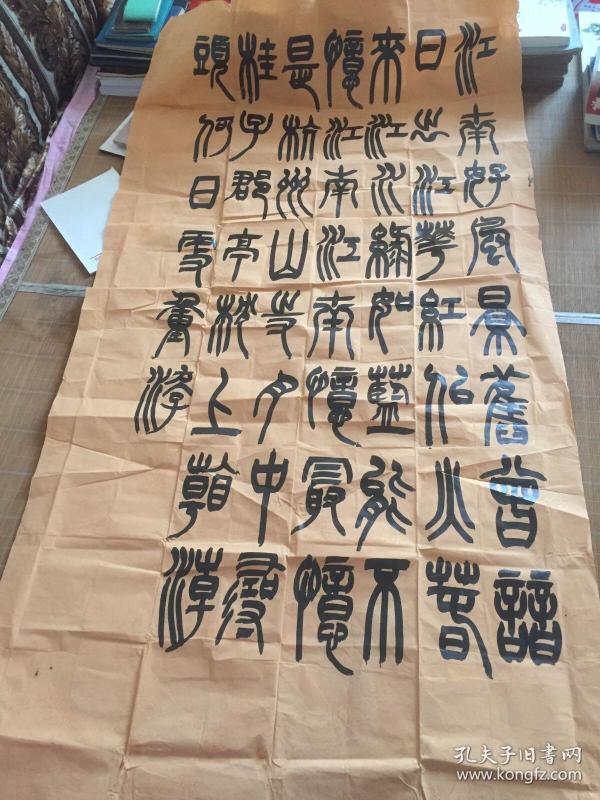 江南好風景舊曾諳
日出江花紅似火春
來江水綠如藍能不
憶江南江南憶最憶
是杭州山寺月中尋
桂子郡亭枕上看潮
頭何日更重游
孔夫子旧书网
www.kongfz.com